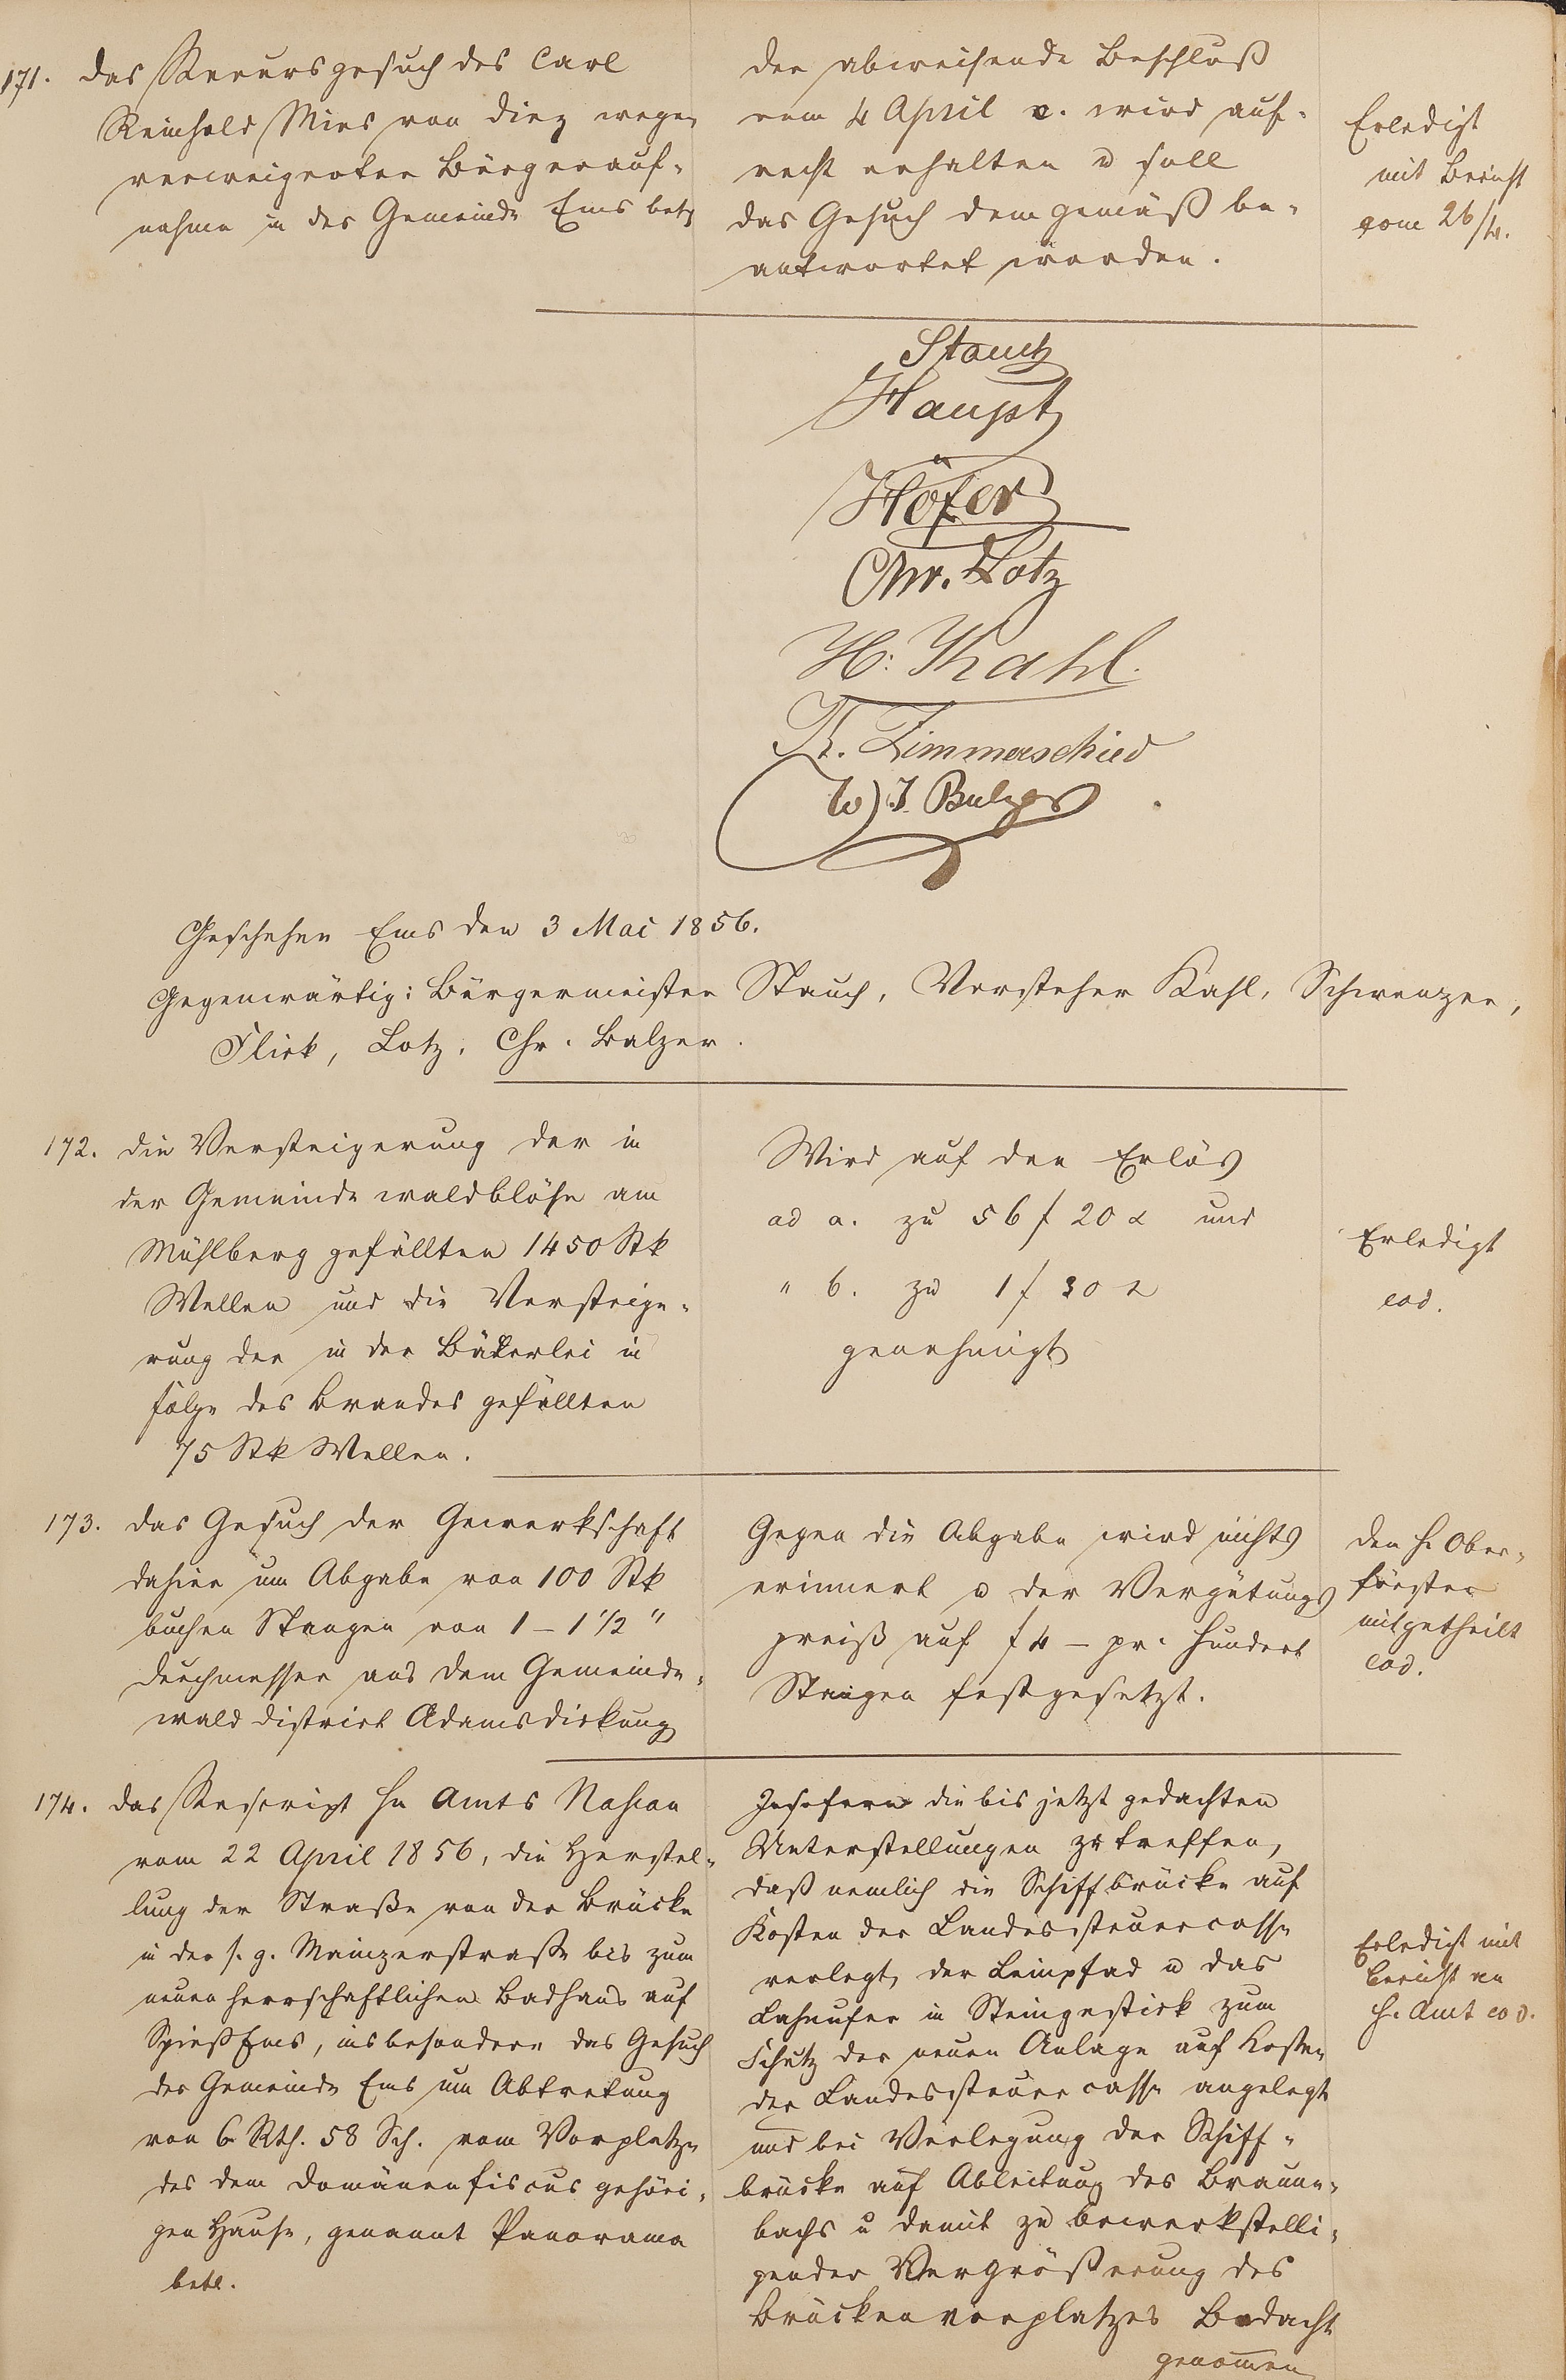 171. das Recursgesuch des Carl
Reinhold Mies von Diez wegen
verweigerter Bürgerauf-
nahme in der Gemeinde Ems betr
der abweisende Beschluß
vom 4 April c. wird auf-
recht erhalten u soll
das Gesuch demgemäß be-
antwortet werden.
Erledigt
mit Bericht
vom 26/4.
Stauch
Haupt
Höfer
Chr. Lotz
H: Kahl.
Zimmerschied
Balzer
Geschehen Ems den 3 Mai 1856.
Gegenwärtig: Bürgermeister Stauch, Vorsteher Kahl, Schwenzer,
Flick, Lotz, Chr. Balzer.
172. die Versteigerung der in
der Gemeindewaldblöse am
Mühlberg gefällten 1450 Stk
Wellen und die Versteige-
rung der in der Bäderlei in
folge des Brandes gefällten
75 Stk Wellen.
Wird auf den Erlös
ad a. zu 56 f 20 x und
" b. zu 1 f 30 x
genehmigt
Erledigt
eod.
173. das Gesuch der Gewerkschaft
dahier um Abgabe von 100 Stk
buchen Stangen von 1 – 1 1/2 "
Durchmesser aus dem Gemeinde-
wald District Adamsdickung
Gegen die Abgabe wird nichts
erinnert u der Vergütungs
preiß auf f 4 – pr. Hundert
Stangen festgesetzt.
den H. Ober-
förster
mitgetheilt
eod.
174. das Rescript Hn Amts Nassau
vom 22 April 1856, die Herstel-
lung der Straße von der Brücke
in der s. g. Mainzerstraße bis zum
neuen herrschaftlichen Badhaus auf
Spieß Ems, insbesondere das Gesuch
der Gemeinde Ems um Abtretung
von 6 Rth. 58 Sch. vom Vorplatze
des dem Domänenfiscus gehöri-
gen Hause, genannt Panorama
betr.
Insofern die bis jetzt gedachten
Unterstellungen zutreffen,
daß nemlich die Schiffbrücke auf
Kosten der Landessteuercasse
verlegt, der Leinpfad u das
Lahnufer in Steingestick zum
Schutz der neuen Anlage auf Kosten
der Landessteuercasse angelegt
und bei Verlegung der Schiff-
brücke auf Ableitung des Braun-
bachs u damit zu bewerkstelli-
gender Vergrößerung des
Brückenvorplatzes Bedacht
genommen
Erledigt mit
Bericht an
H. Amt eod.